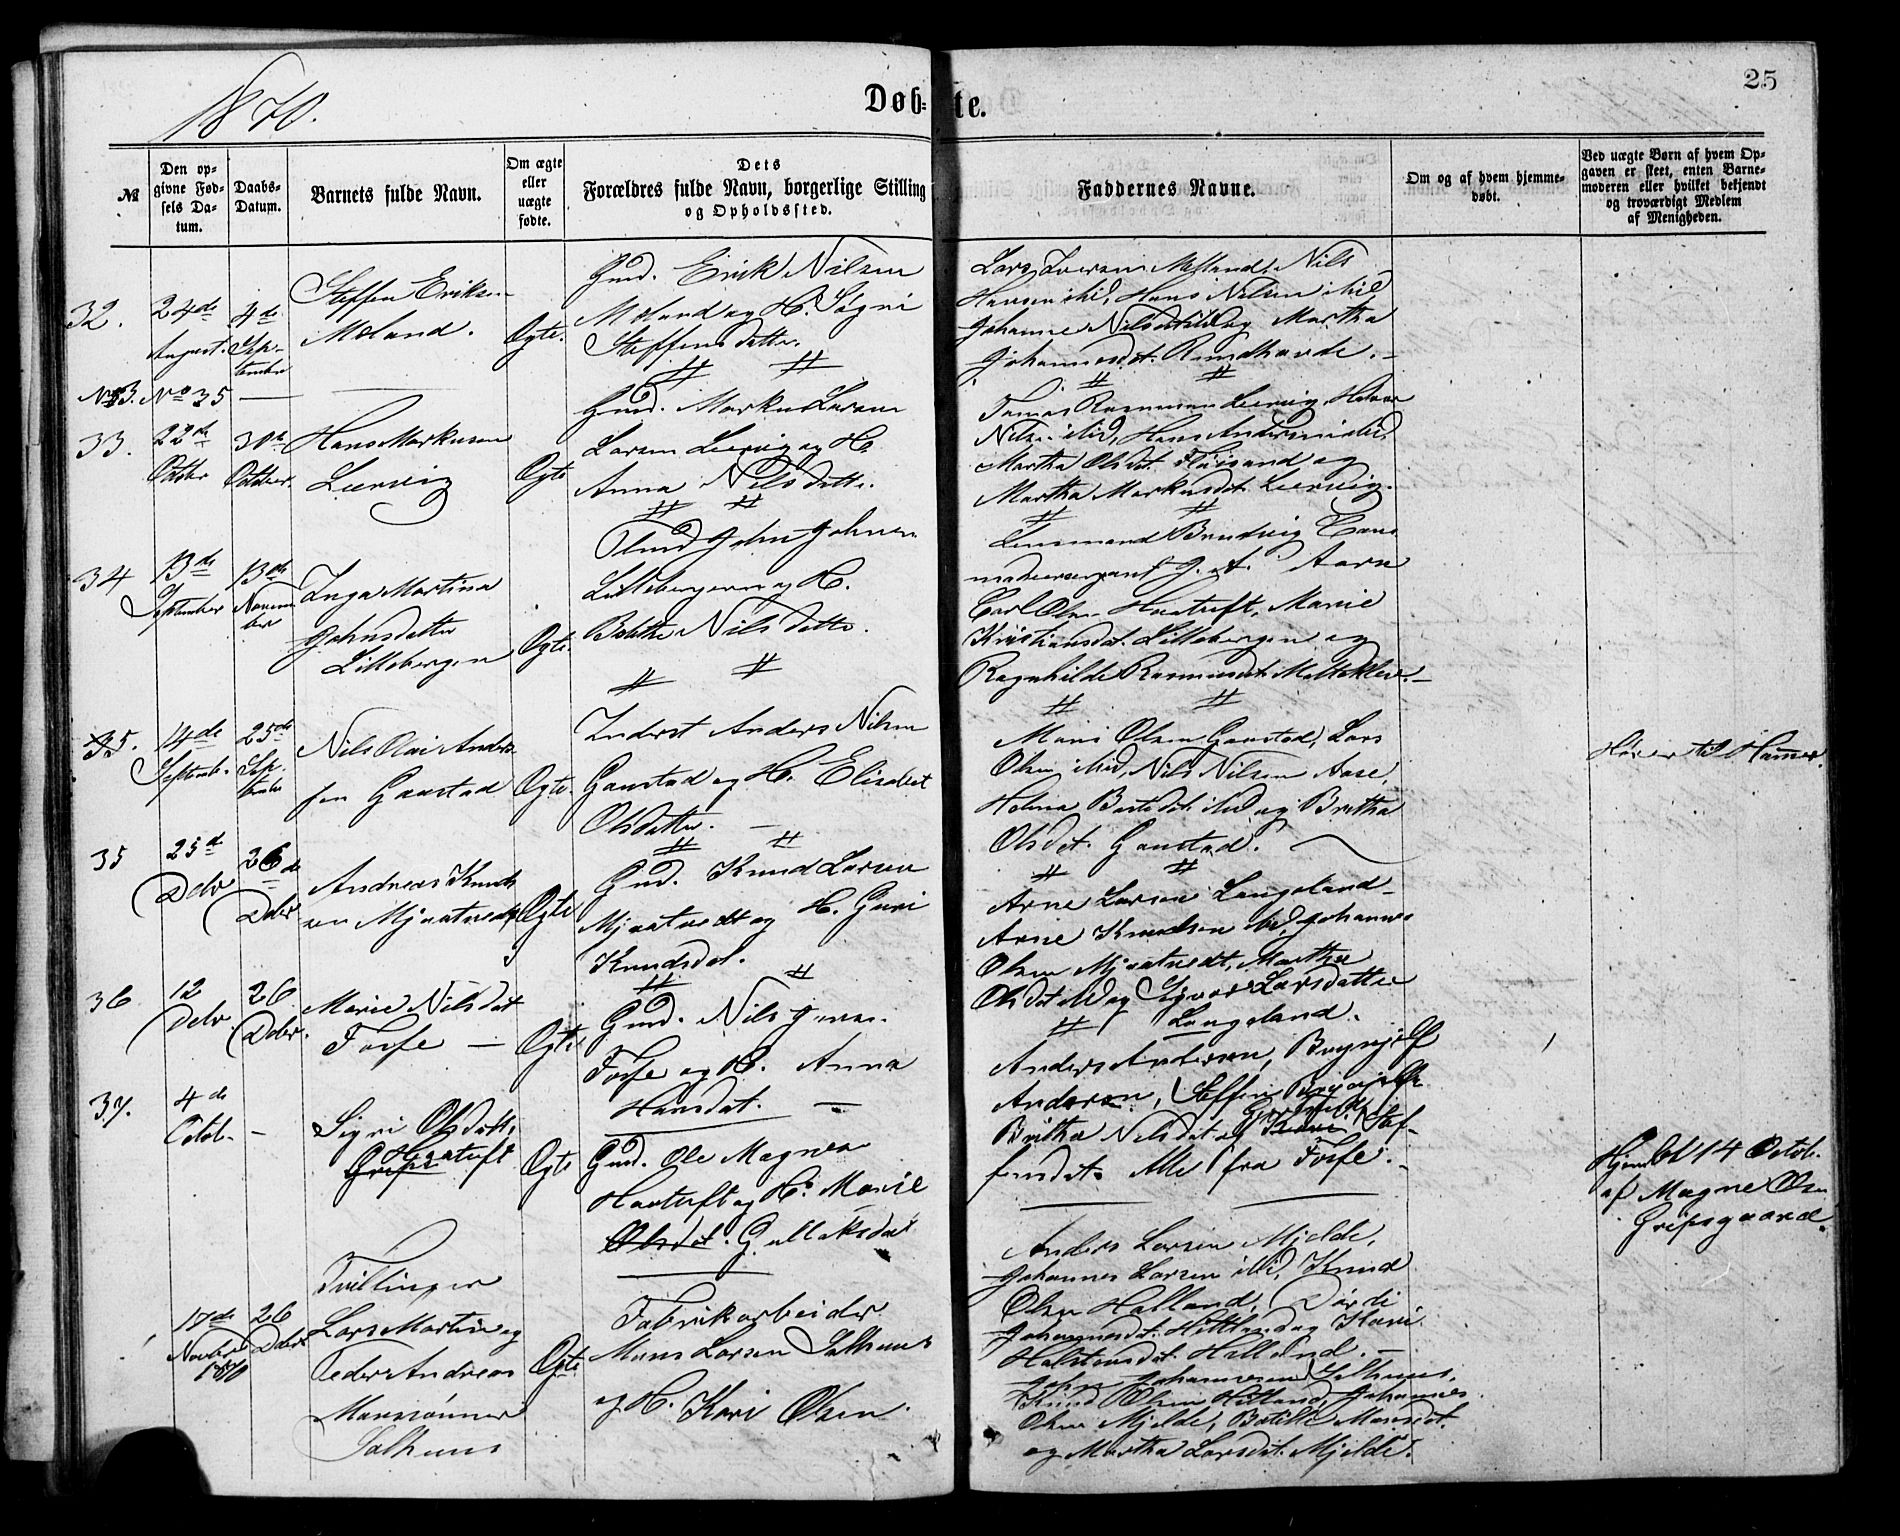 25
1870.
Døb-
te.
№
Den op-
givne Fød-
sels Da-
tum.
Daabs-
Datum.
Barnets fulde Navn.
Om ægte
eller
uægte
fødte.
Dets
Forældres fulde Navn, borgerlige Stilling
og Opholdssted.
Faddernes Navne.
Om og af hvem hjemme-
døbt.
Ved uægte Børn af hvem Op-
gaven er skeet, enten Barne-
moderen eller hvilket bekjendt
og troværdigt Medlem
af Menigheden.
32.
24de
August.
4de
Sep-
tember
Steffen Eriksen
Moland.
Ægte.
Gmd. Erik Nilsen
Moland og H. Søgni
Steffensdatter.
Lars Iversen Nils
Hansen ibid, Hans Nilsen ibid
Johanne og Martha
Johannesdt. Rundhovde.
No 35
33.
22de
Octobr
30te
October.
Hans Markusen
Leervig
Ægte
Gmd. Markus Larsen
Larsen Leervig og H.
Anna Nilsdatter.
Tomas Rasmussen Leervig, Halvor
Nilsen ibid, Hans Andersen ibid,
Martha Olsdt. Fløisand og
Martha Markusdt. Leervig.
34
13de
September
13de
Novem
ber
Inga Martina
Johnsdatter
Lillebergen
Ægte.
John Johnsen
Lillebergen og H.
Nilsdatter.
Lensmand Brudvig
Carl Olsen Haatuft, Marie
Kristiansdt. Lillebergen og
Ragnhilde Rasmusdt.
35.
14de
Septemb.
25de
Sep-
tember
Nils Olai Anders-
sen Gaustad
Ægte.
Inderst Anders Nilsen
Gaustad og H. Elisabet
Olsdatter.
Mons Olsen Gaustad, Lars
Olsen ibid, Nils Nilsen Aase,
Helena ibid og Britha
Olsdt. Gaustad.
Hører til Hamer.
35
25de
Octobr
26de
Decbr
Andreas Knud-
sen Mjaatvedt
Ægte
Gmd. Knud Larsen
Mjaatvedt og H. Guri
Knudsdt.
Arne Larsen Langeland
Arne Knudsen ibd, Johannes
Olsen Mjaatvedt, Martha
Olsdt ibid og Larsdatter
Langeland.
36
12
Decbr
26
Decbr.
Marie Nilsdat
Fosse
Ægte
Gmd. Nils
Fosse og H. Anna
Hansdat.
Anders Andersen, Brynjolf
Andersen, Steffen Brynjolfs
Britha Nilsdt og Stef-
fensdt. Alle fra Fosse.
37.
4de
Octob.
Sigri Olsdatt.
Haatuft
Ægte
Gmd. Ole Magnesen
Haatuft og H. Marie
Olsdat. Gulleksdat
Hjemdbt 14 Octob.
af Magne Olsen
Gripsgaard.
17de
Novbr
1870
26
Decbr
Tvillinger
Lars Martin og
Peder Andreas
Monssønner
Salhuus
Ægte
Fabrikarbeider
Mons Larsen Salhuus
og H. Kari Olsen.
Anders Larsen Mjelde,
Johannes Larsen ibid, Knud
Olsen Helland,
Johannesdt. Hitland og Kari
Halstensdt. Helland.
John Johannesen Salhuus,
Knud Olsen Hitland, Johannes
Olsen Mjelde, Botilde Monsdt.
og Martha Larsdt. Mjelde.